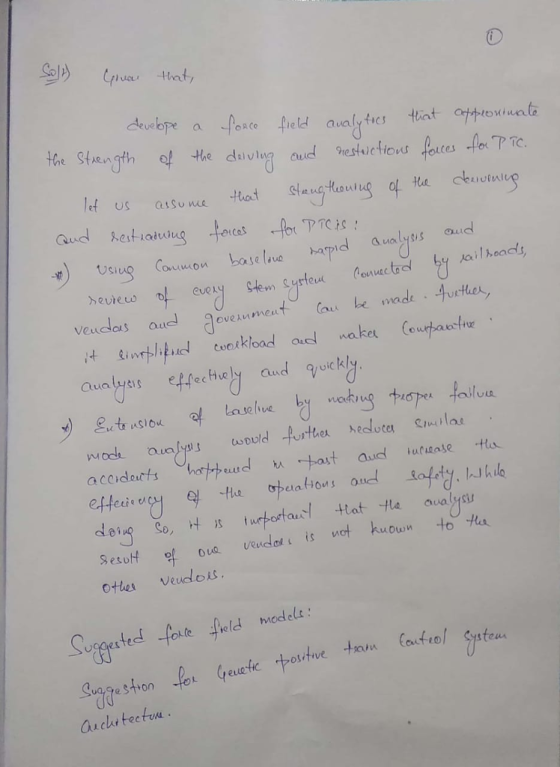 1
Sol1) Given that,
develope a force field analytics that approximate
the strength of the driving and restrictions forces for PTC.
let us assume that strengthening of the derivining
and restraining forces for PTC is:
*) Using Common baseline rapid analysis and
review of every stem system connected by railroads,
vendors and government can be made. further,
it simplified workload and makes Comparative
analysis effectively and quickly.
*) Extension of baseline by making proper failure
mode analysis would further reduces similar
accidents happened in past and increase the
efficiency of the operations and safety. While
doing so, it is important that the analysis
result of one vendors is not known to the
other vendors.
Suggested force field models:
Suggestion for Genetic positive train Control system
architecture.